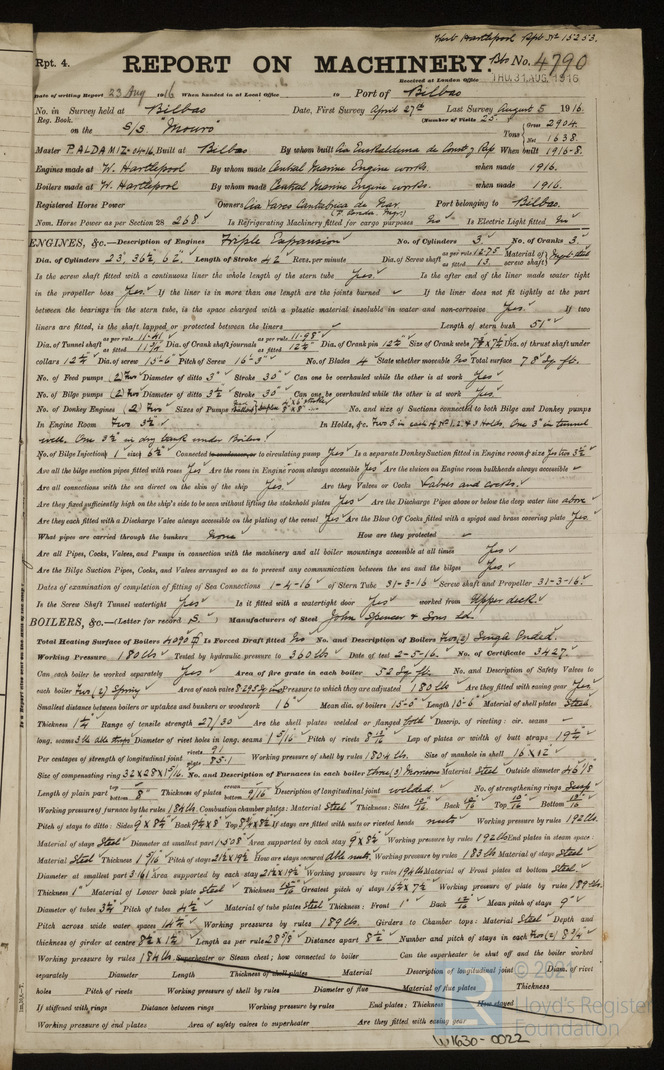 West Hartlepool Rpt No 15253.
Rpt. 4. REPORT ON MACHINERY. No. 4790
Received at London Office THU. 31 AUG. 1916
Date of writing Report 23 Aug 1916 When handed in at Local Office 19 Port of Bilbao
No. in Survey held at Bilbao Date, First Survey April 27th Last Survey August 5 1916.
Reg. Book. (Number of Visits 25
on the S/S "Mouro" Tons Gross 2904 Net 1638
Master P. ALDAMIZ -04-16 Built at Bilbao By whom built Cia Euskalduna de Const y Rep When built 1916-8.
Engines made at W. Hartlepool By whom made Central Marine Engine works. when made 1916.
Boilers made at W. Hartlepool By whom made Central Marine Engine works. when made 1916.
Registered Horse Power Owners Cia Vasco Cantabrica de Nav Port belonging to Bilbao.
Nom. Horse Power as per Section 28 268. Is Refrigerating Machinery fitted for cargo purposes No Is Electric Light fitted No
ENGINES, &c.—Description of Engines Triple Expansion No. of Cylinders 3 No. of Cranks 3.
Dia. of Cylinders 23", 36½, 62" Length of Stroke 42 Revs. per minute Dia. of Screw shaft as per rule 12.75 as fitted 13 Material of screw shaft Ingot steel
Is the screw shaft fitted with a continuous liner the whole length of the stern tube Yes. Is the after end of the liner made water tight
in the propeller boss Yes. If the liner is in more than one length are the joints burned If the liner does not fit tightly at the part
between the bearings in the stern tube, is the space charged with a plastic material insoluble in water and non-corrosive Yes. If two
liners are fitted, is the shaft lapped or protected between the liners Length of stern bush 51"
Dia. of Tunnel shaft as per rule 11.41 as fitted 11¾ Dia. of Crank shaft journals as per rule 11.98 as fitted 12¼ Dia. of Crank pin 12½ Size of Crank webs 7¾ x 7½ Dia. of thrust shaft under
collars 12¼ Dia. of screw 15-6" Pitch of Screw 16-3" No. of Blades 4 State whether moveable No Total surface 78 Sq. ft.
No. of Feed pumps (2) Two Diameter of ditto 3" Stroke 30" Can one be overhauled while the other is at work Yes
No. of Bilge pumps (2) Two Diameter of ditto 3½ Stroke 30" Can one be overhauled while the other is at work Yes
No. of Donkey Engines (2) Two Sizes of Pumps No. and size of Suctions connected to both Bilge and Donkey pumps
In Engine Room Two 3½" In Holds, &c. Two 3" in each of No 1, 2 & 3 Holds. One 3" in tunnel
well. One 3½ in dry tank under Boilers
No. of Bilge Injections 1 sizes 6½ Connected to condenser, or to circulating pump Yes Is a separate Donkey Suction fitted in Engine room & size Yes two 3½
Are all the bilge suction pipes fitted with roses Yes Are the roses in Engine room always accessible Yes Are the sluices on Engine room bulkheads always accessible
Are all connections with the sea direct on the skin of the ship Yes. Are they Valves or Cocks Valves and cocks.
Are they fixed sufficiently high on the ship's side to be seen without lifting the stokehold plates Yes Are the Discharge Pipes above or below the deep water line above
Are they each fitted with a Discharge Valve always accessible on the plating of the vessel Yes Are the Blow Off Cocks fitted with a spigot and brass covering plate Yes.
What pipes are carried through the bunkers None How are they protected
Are all Pipes, Cocks, Valves, and Pumps in connection with the machinery and all boiler mountings accessible at all times Yes
Are the Bilge Suction Pipes, Cocks, and Valves arranged so as to prevent any communication between the sea and the bilges Yes
Dates of examination of completion of fitting of Sea Connections 1-4-16 of Stern Tube 31-3-16 Screw shaft and Propeller 31-3-16.
Is the Screw Shaft Tunnel watertight Yes Is it fitted with a watertight door Yes worked from Upper deck.
BOILERS, &c.—(Letter for record S.) Manufacturers of Steel John Spencer & Sons Ld.
Total Heating Surface of Boilers 4090 Is Forced Draft fitted No No. and Description of Boilers Two (2) Single Ended.
Working Pressure 180 lbs Tested by hydraulic pressure to 360 lbs Date of test 2-5-16. No. of Certificate 3427
Can each boiler be worked separately Yes Area of fire grate in each boiler 52 Sq. ft. No. and Description of Safety Valves to
each boiler Two (2) Spring Area of each valve 8.295 Sq ins Pressure to which they are adjusted 180 lbs Are they fitted with easing gear Yes
Smallest distance between boilers or uptakes and bunkers or woodwork 16" Mean dia. of boilers 15-0" Length 10-6" Material of shell plates Steel.
Thickness 1¼ Range of tensile strength 27/30 Are the shell plates welded or flanged Descrip. of riveting: cir. seams
long. seams Diameter of rivet holes in long. seams 1 5/16 Pitch of rivets 8 13/16 Lap of plates or width of butt straps 19¼
Per centages of strength of longitudinal joint rivets 91 plate 85.1 Working pressure of shell by rules 180.4 lbs. Size of manhole in shell 16 x 12"
Size of compensating ring 32 x 28 x 1 5/16 No. and Description of Furnaces in each boiler three (3) Morrison Material Steel Outside diameter 46 1/8
Length of plain part top bottom 8" Thickness of plates crown bottom 9/16 Description of longitudinal joint welded. No. of strengthening rings
Working pressure of furnace by the rules 184 lbs. Combustion chamber plates: Material Steel Thickness: Sides Back Top Bottom
Pitch of stays to ditto: Sides 9 x 8½ Back 9½ x 8" Top If stays are fitted with nuts or riveted heads nuts Working pressure by rules 192 lbs.
Material of stays Steel Diameter at smallest part 1.508 Area supported by each stay 9 x 8½ Working pressure by rules 192 lbs End plates in steam space:
Material Steel Thickness 1 1/16 Pitch of stays 21½ x 19½ How are stays secured dble nuts. Working pressure by rules 183 lbs Material of stays Steel
Diameter at smallest part 3.161 Area supported by each stay 21½ x 19½ Working pressure by rules 194 lbs Material of Front plates at bottom Steel.
Thickness 1" Material of Lower back plate Steel Thickness Greatest pitch of stays 16½ x 7½ Working pressure of plate by rules 189 lbs.
Diameter of tubes 3¼ Pitch of tubes 4½ Material of tube plates Steel Thickness: Front 1" Back Mean pitch of stays 9"
Pitch across wide water spaces 14¼ Working pressures by rules 189 lbs. Girders to Chamber tops: Material Steel Depth and
thickness of girder at centre 8½ x 1½ Length as per rule 28 5/8 Distance apart 8½ Number and pitch of stays in each Two (2) 8¾
Working pressure by rules 184 lbs Superheater or Steam chest; how connected to boiler Can the superheater be shut off and the boiler worked
separately Diameter Length Thickness of shell plates Material Description of longitudinal joint Diam. of rivet
holes Pitch of rivets Working pressure of shell by rules Diameter of flue Material of flue plates Thickness
If stiffened with rings Distance between rings Working pressure by rules End plates: Thickness How stayed
Working pressure of end plates Area of safety valves to superheater Are they fitted with easing gear
© 2021
Lloyd's Register
Foundation
W1630-0022